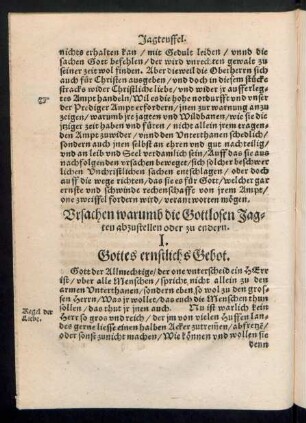 Jagteuffel.
nichts erhalten kan / mit Gedult leiden / vnnd die
sachen Gott befehlen / der wird vnrechten gewalt zu
seiner zeit wol finden. Aber dieweil die Oberherrn sich
auch für Christen ausgeben / vnd doch in diesem stücke
stracks wider Christliche liebe / vnd wider jr aufferleg-
tes Ampt handeln / Wil es die hohe notturfft vnd vnser
der Prediger Ampt erfordern / jnen zur warnung anzu
zeigen / warumb jre jagten vnd Wildbanen / wie sie die
jtziger zeit haben vnd füren / nicht allein jrem tragen-
den Ampt zuwider / vnnd den Vnterthanen schedlich /
sondern auch jnen selbst an ehren vnd gut nachteilig /
vnd an leib vnd Seel verdamlich sein / Auff das sie aus
nachfolgenden vrsachen beweget / sich solcher beschwer
lichen Vnchristlichen sachen entschlagen / oder doch
auff die wege richten / das sie es für Gott / welcher gar
ernste vnd schwinde rechenschafft von jrem Ampt /
one zweiffel fordern wird / verantworten mögen.
Vrsachen warumb die Gottlosen Jag-
ten abzustellen oder zu endern.
I.
Gottes ernstlichs Gebot.
Gott der Allmechtige / der one vnterscheid ein HErr
ist / vber alle Menschen / spricht nicht allein zu den
armen Vnterthanen / sondern eben so wol zu den gros
sen Herrn / Was jr wollet / das euch die Menschen thun
sollen / das thut jr jnen auch. Nu ist warlich kein
Regel der
Liebe.
Herr so gros vnd reich / der jm von vielen Huffen lan-
des gerne liesse einen halben Acker zutretten / abfretzē /
oder sonst zunicht machen / Wie können vnd wollen sie
denn